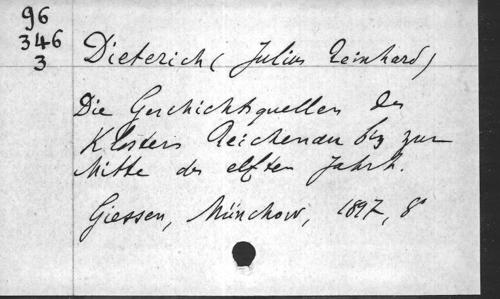 96
346
3
Dieterich (Julius Reinhard)
Die Geschichtsquellen des
Klosters Reichenau bis zur
Mitte des elften Jahrh.
Giessen, Münchow, 1897, 8°